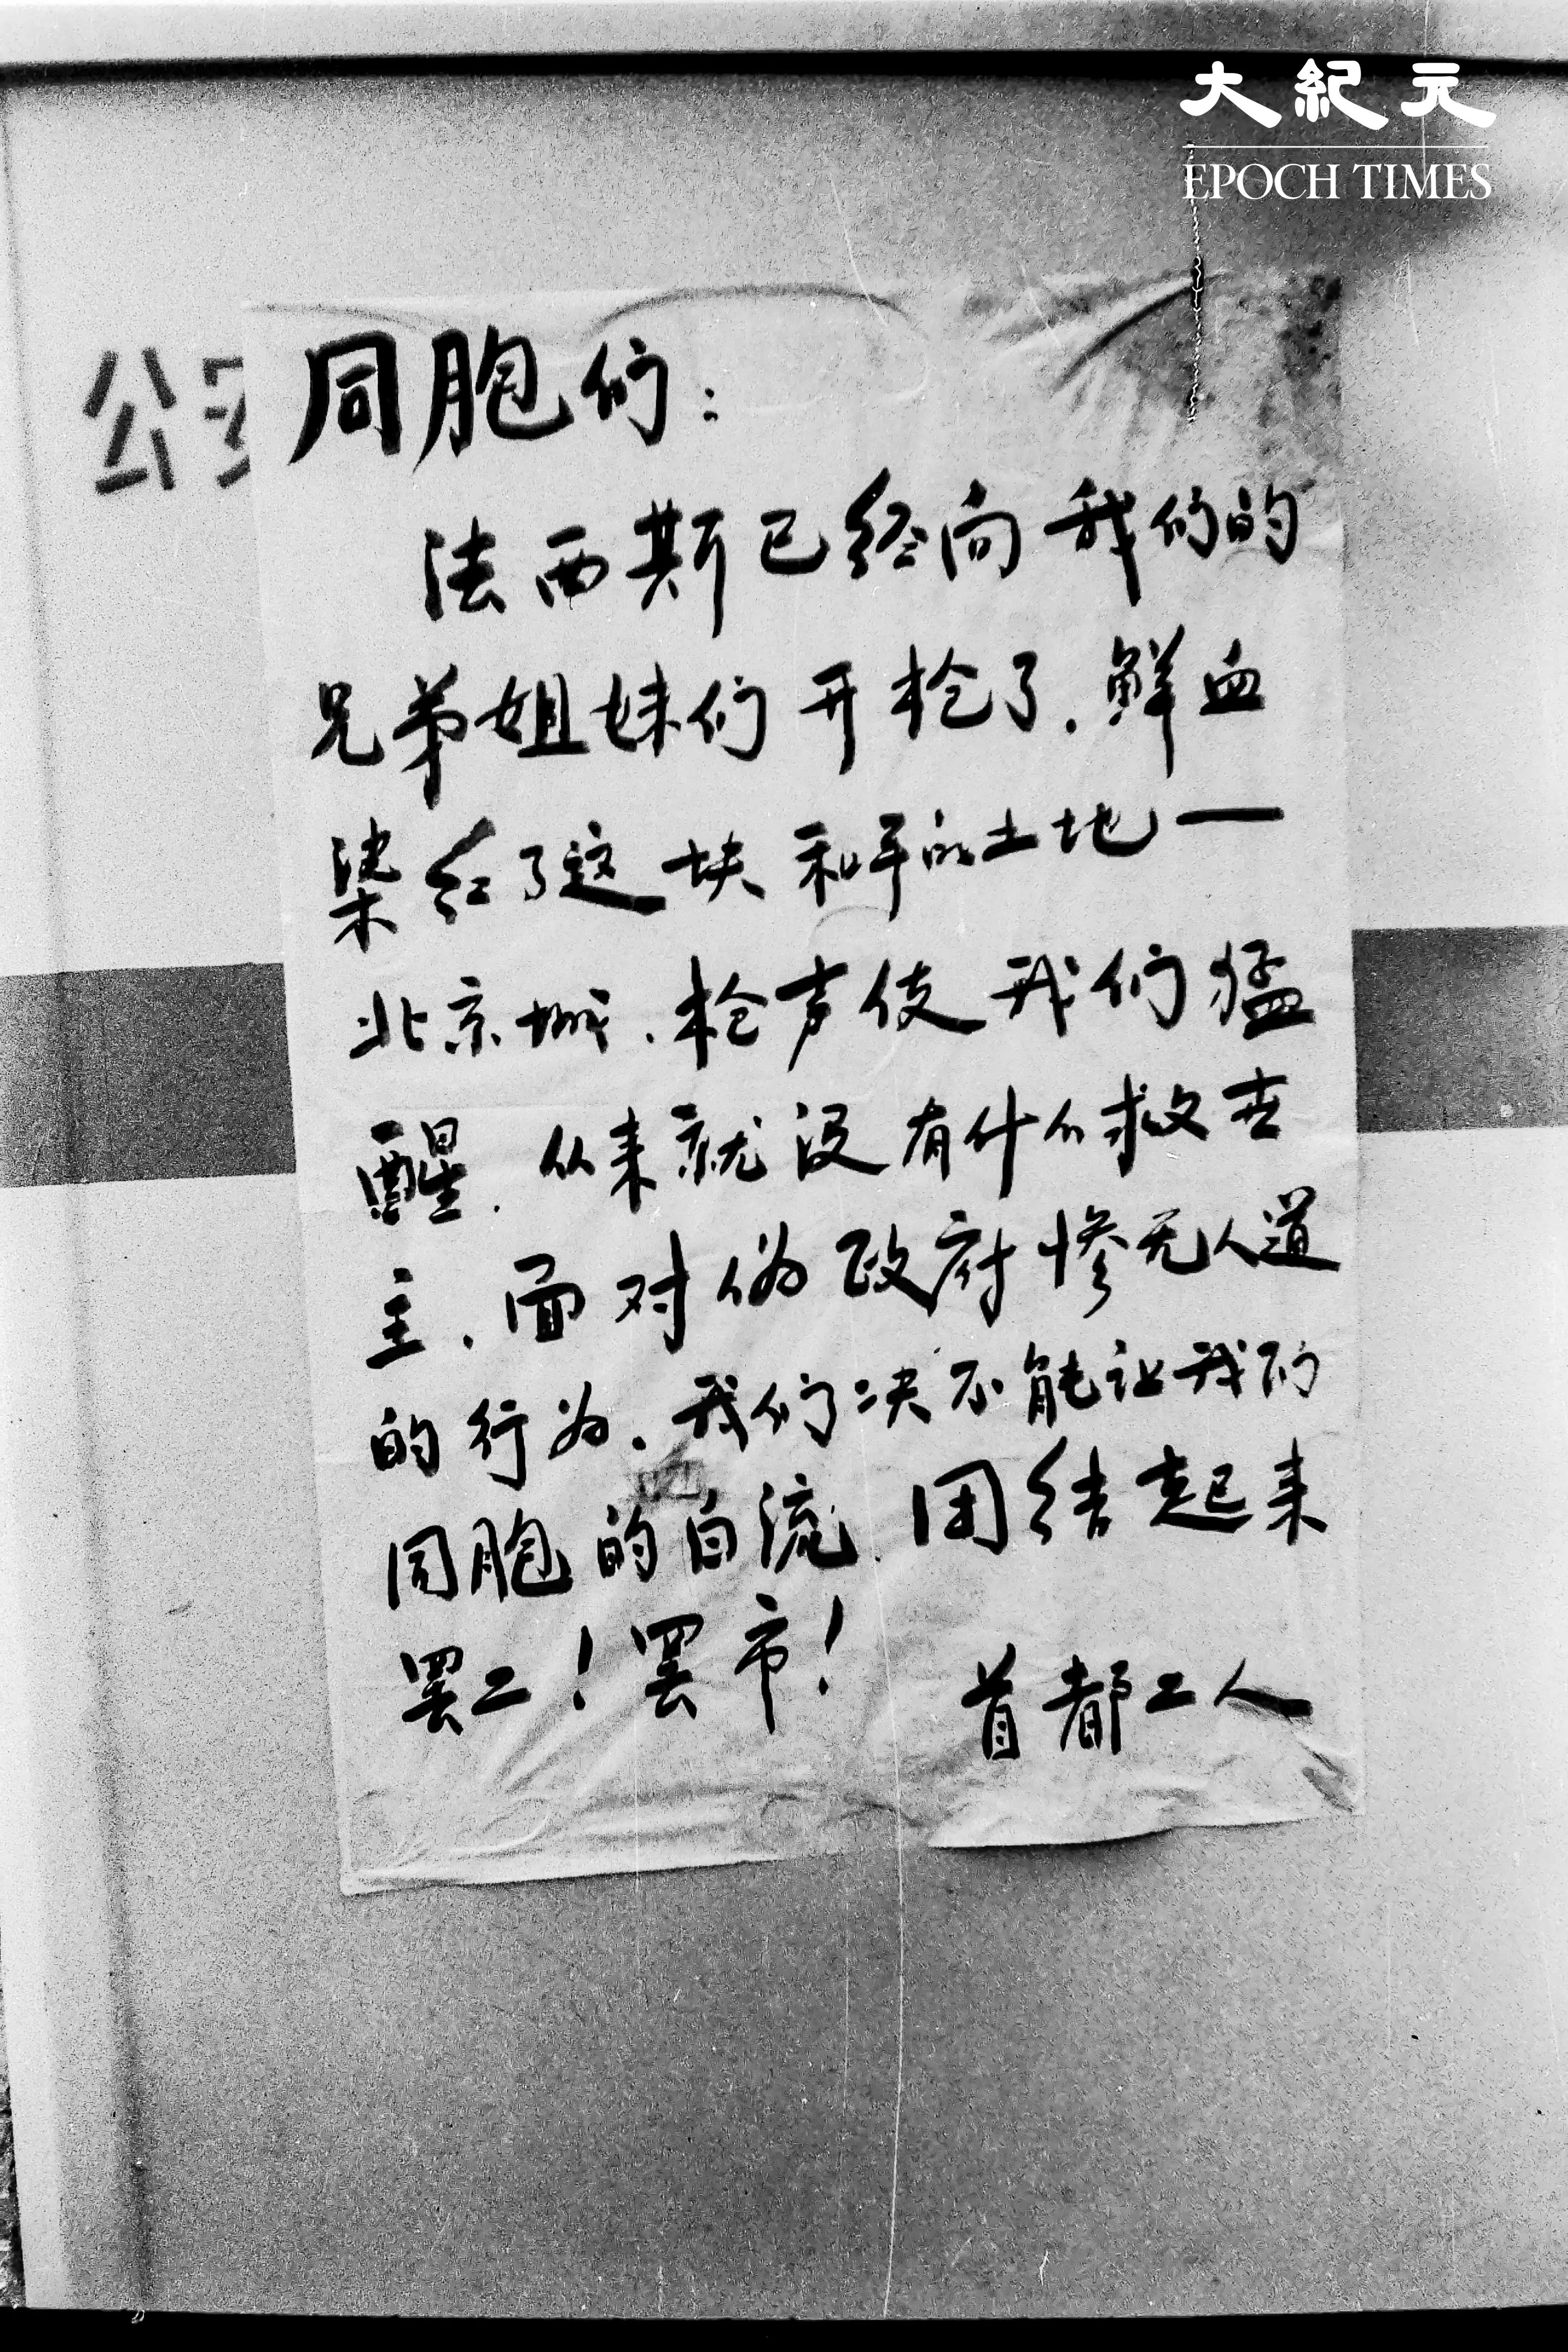 大紀元
EPOCH TIMES
公
同胞们:
法西斯已经向我们的
兄弟姐妹们开枪了.鲜血
染红了这块和平的土地一
北京城.枪声使我们猛
醒.从来就没有什么救世
主.面对伪政府惨无人道
的行为.我们决不能让我们
同胞的白流.团结起来
罢工!罢市!
首都工人